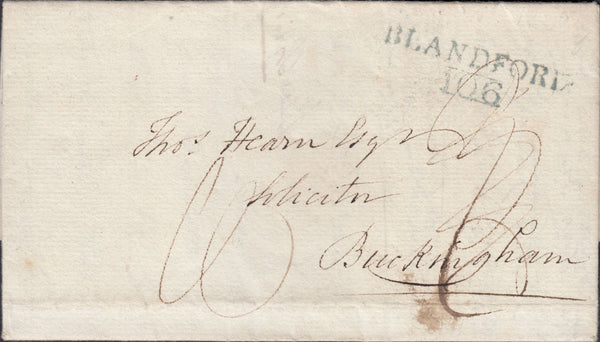 BLANDFORD
106
Thos Hearn Esqr
Solicitor
Buckingham